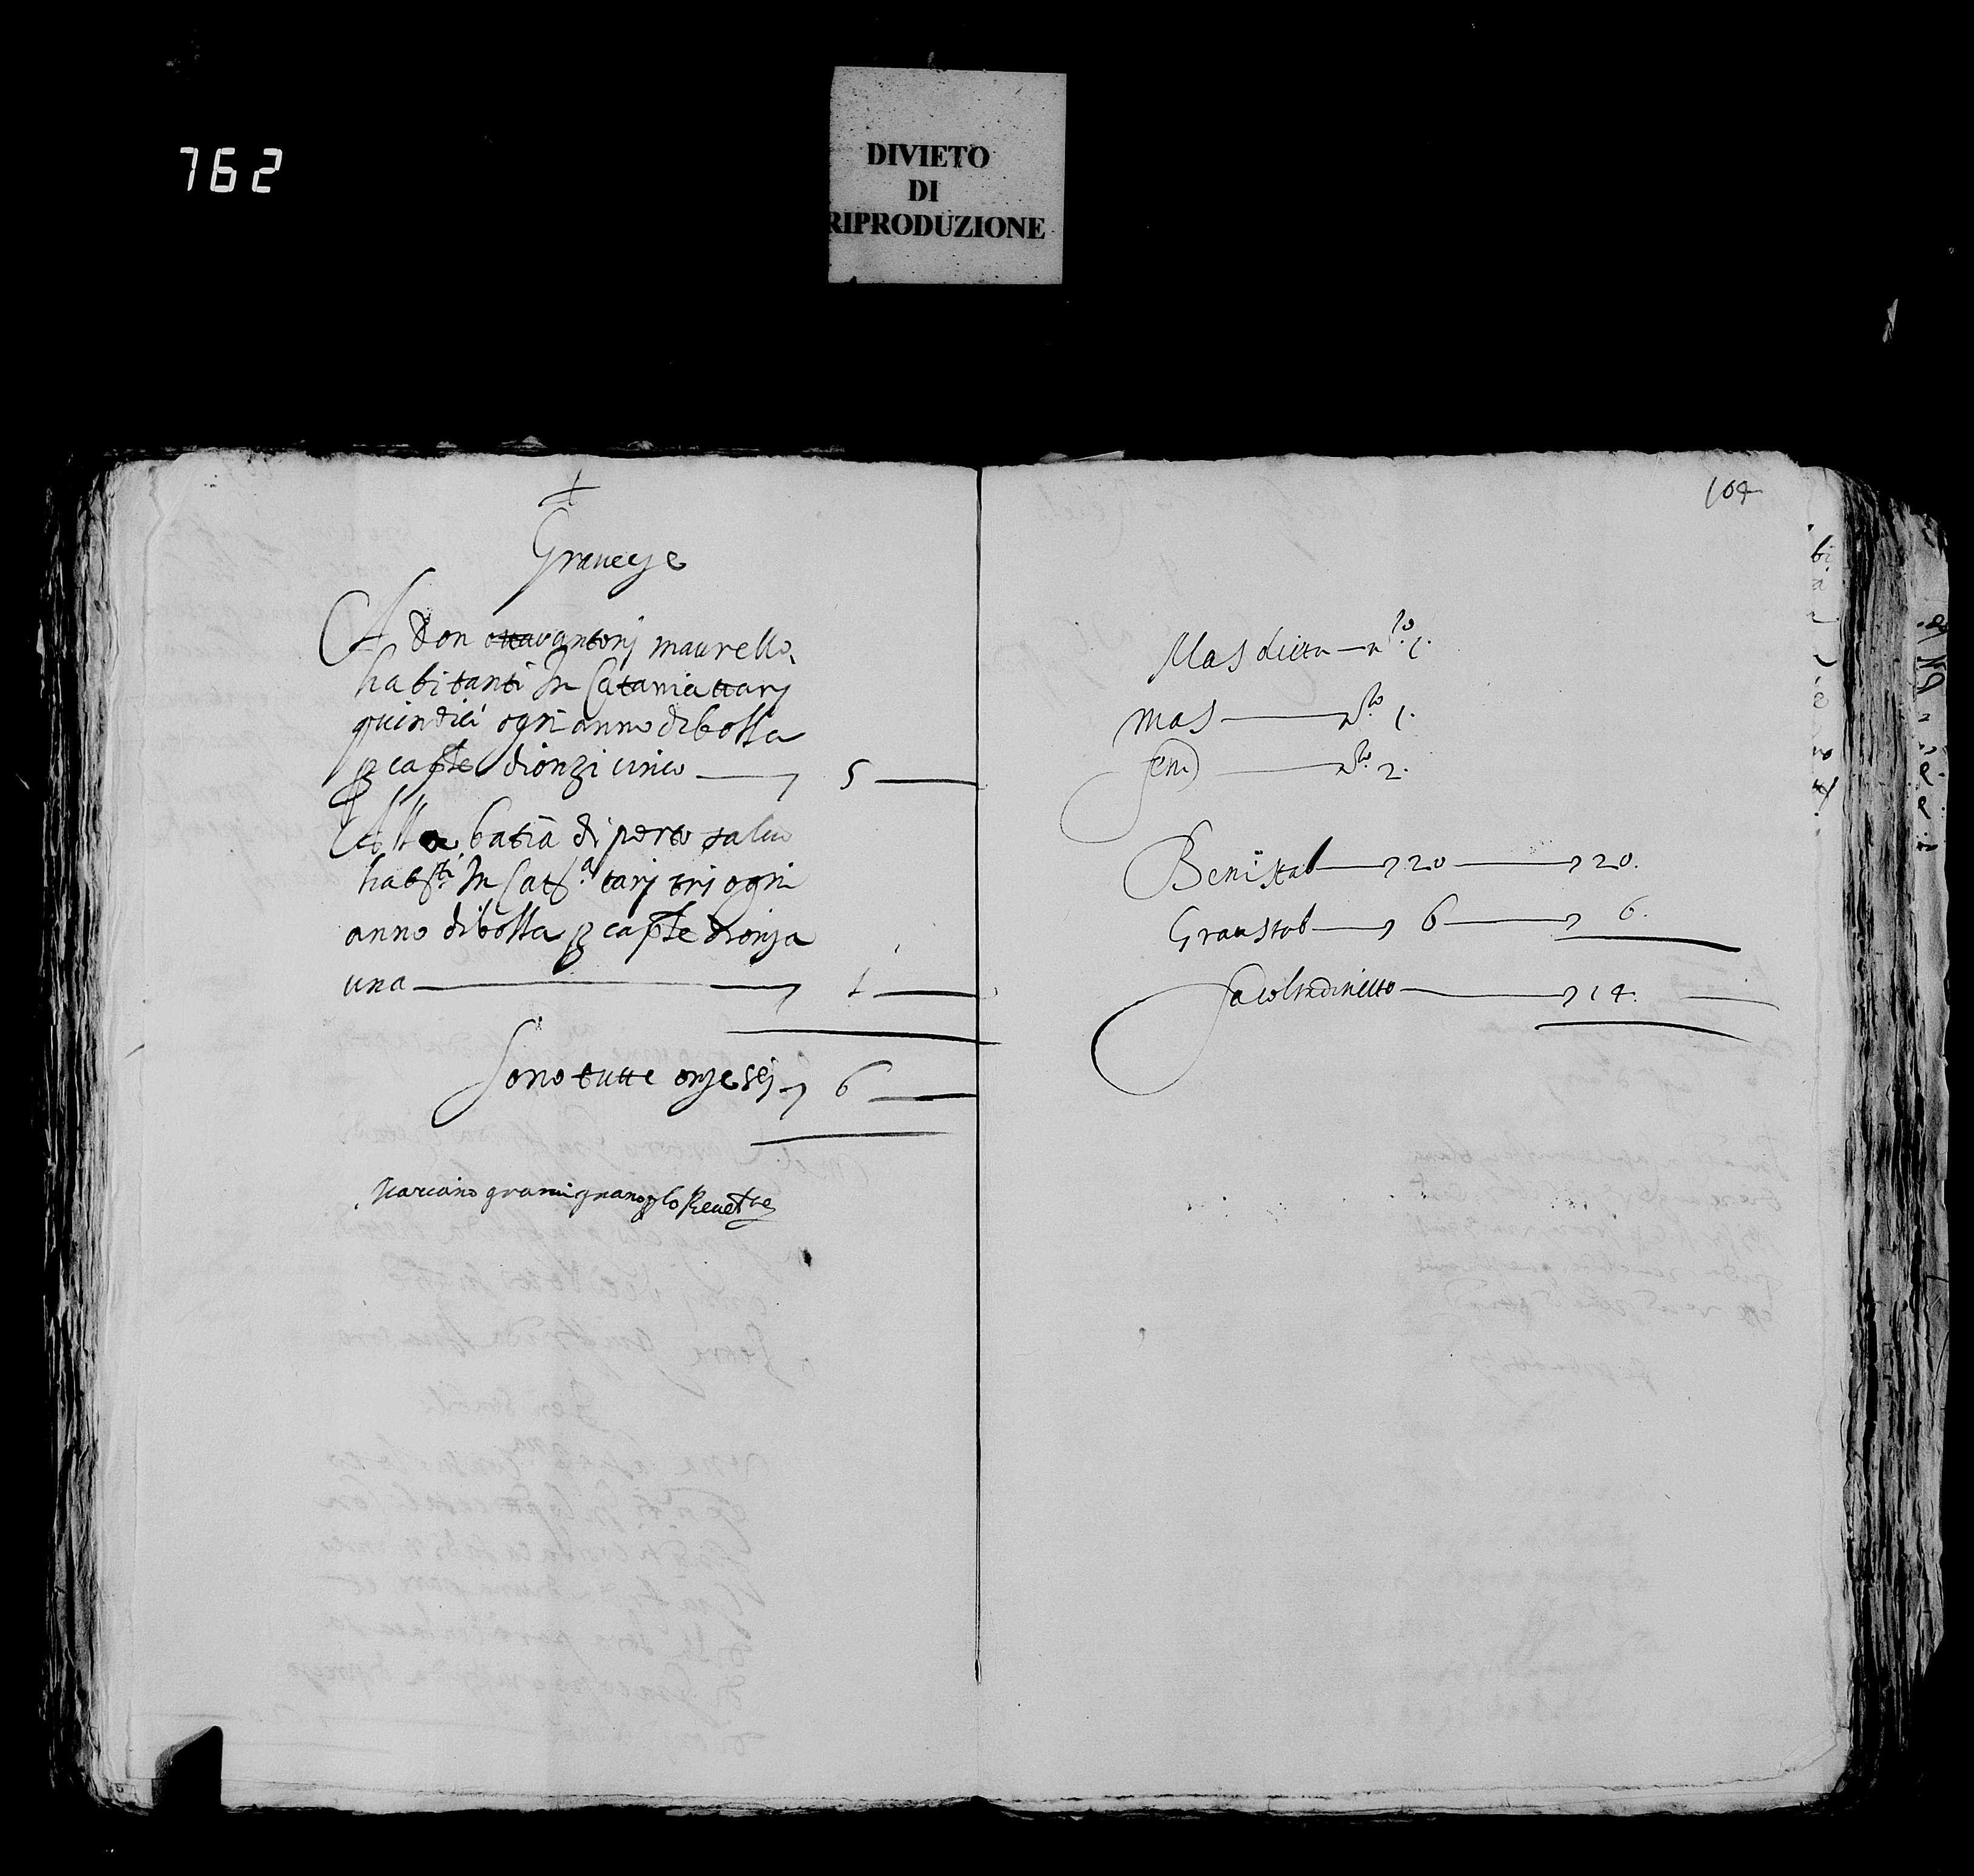 762
DIVIETO
DI
RIPRODUZIONE
+
Graveze
A Don ottavantonj maurello
habitanti In Catania ttarj
quindici ogni anno di bolla
p caple di onzi cinco 5
Alla batia di porto salvo
habti In Cata tarj trj ogni
anno di bolla p caple di onza
una 1
Sono tutte onze sej 6
gramignano p lo
104
Mas ditta nro 1.
mas nro 1.
fem nro 2.
Beni stab 20 20.
Grav stab 6 6.
Facolta di netto 14.